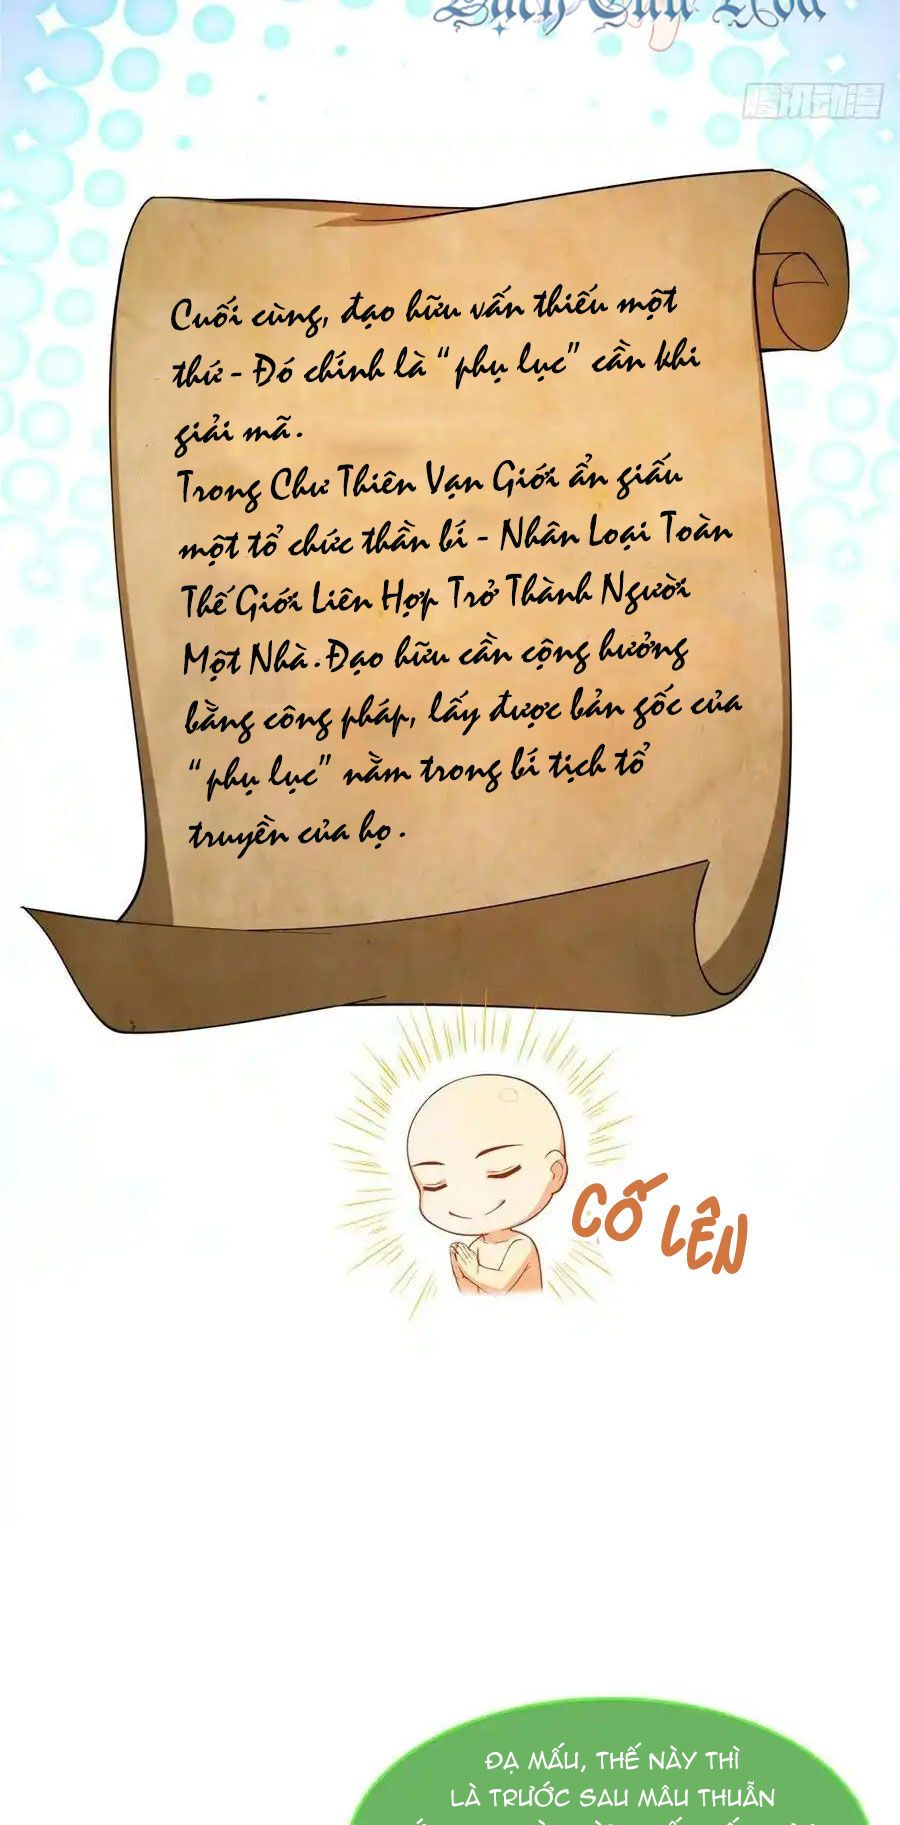 腾讯动漫
Cuối cùng, đạo hữu vấn thiếu một
thứ - Đó chính là "phụ lục" cần khi
giải mã.
Trong Chư Thiên Vạn Giới ẩn giấu
một tổ chức thần bí - Nhân Loại Toàn
Thế Giới Liên Hợp Trở Thành Người
Một Nhà. Đạo hữu cần cộng hưởng
bằng công pháp, lấy được bản gốc của
"phụ lục" nằm trong bí tịch tổ
truyền của họ.
CỐ LÊN
ĐẠ MẤU, THẾ NÀY THÌ
LÀ TRƯỚC SAU MÂU THUẪN